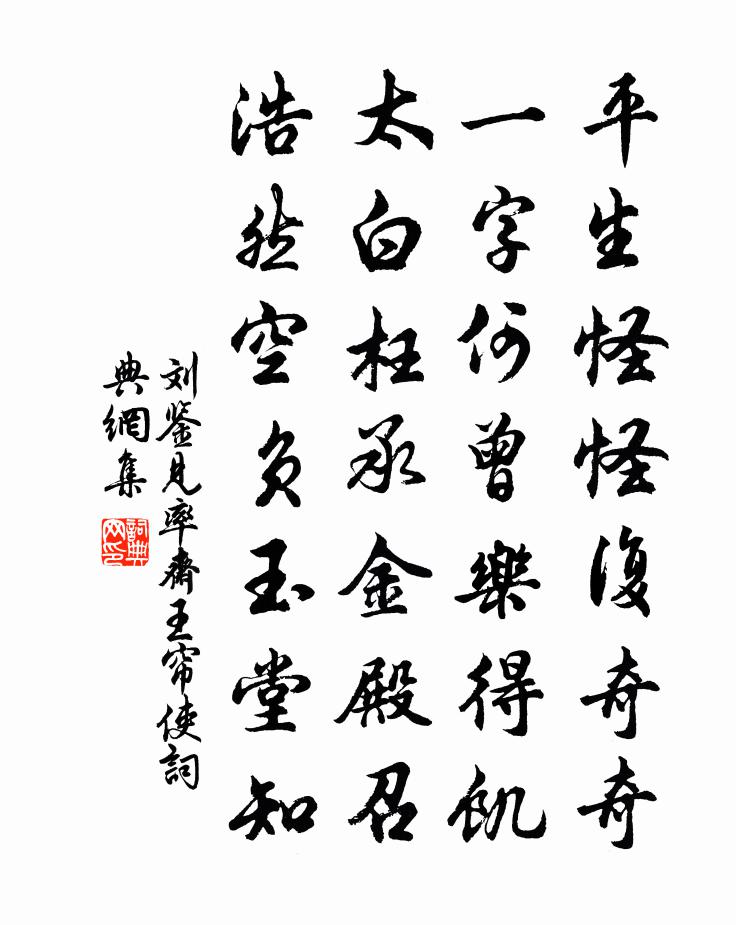 平生怪怪復奇奇
一字何曾樂得飢
太白枉承金殿召
浩然空負玉堂知
刘鉴见率齋王帘使詞
典網集
詞典网印